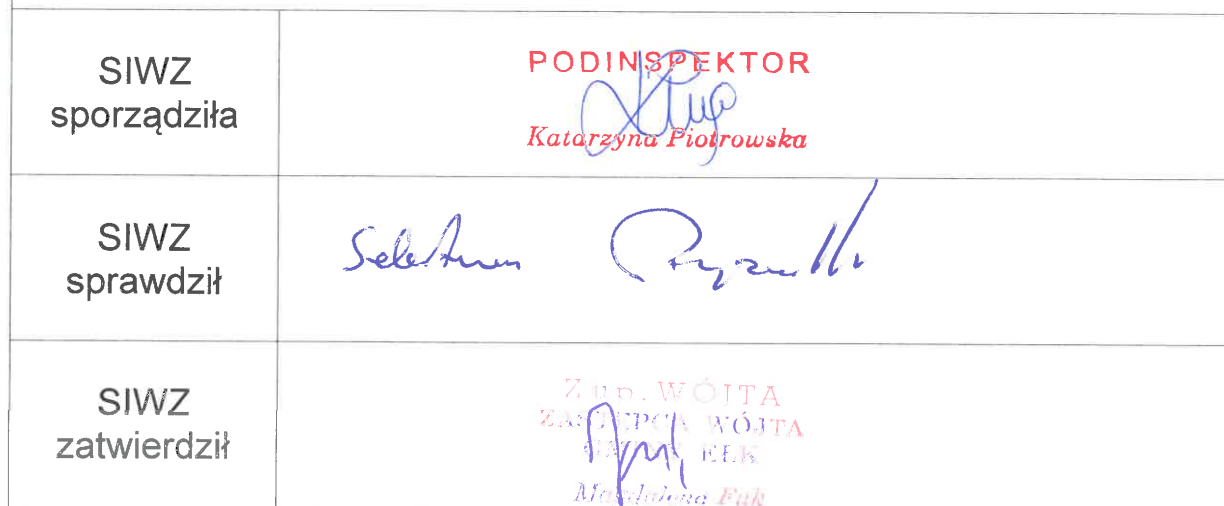 SIWZ
sporządziła
PODINSPEKTOR
Katarzyna Piotrowska
SIWZ
sprawdził
SIWZ
zatwierdził
Z up. WÓJTA
ZASTĘPCA WÓJTA
GMINY EŁK
Magdalena Fuk